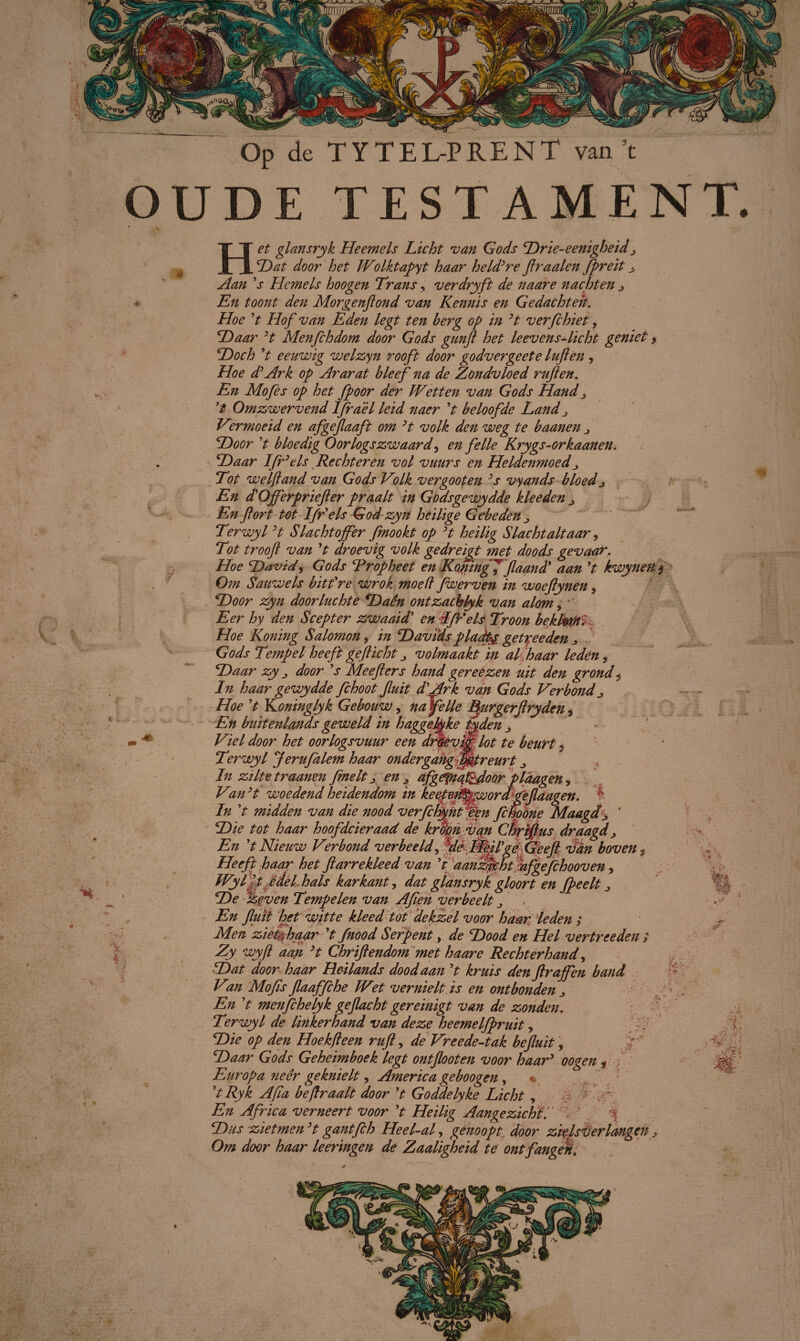 Op de TYTEL-PRENT van 't
OUDE TESTAMENT.
Het glansryk Heemels Licht van Gods Drie-eenigheid,
Dat door het Wolktapyt haar held're straalen spreit,
Aan 's Hemels hoogen Trans, verdryft de naare nachten,
En toont den Morgenstond van Kennis en Gedachten.
Hoe 't Hof van Eden legt ten berg op in 't verschiet,
Daar 't Menschdom door Gods gunst het leevens-licht geniet,
Doch 't eeuwig welzyn rooft door godvergeete lusten,
Hoe d'Ark op Ararat bleef na de Zondvloed rusten.
En Moses op het spoor der Wetten van Gods Hand,
't Omzwervend Israël leid naer 't beloofde Land,
Vermoeid en afgeslaaft om 't volk den weg te baanen,
Door 't bloedig Oorlogszwaard, en felle Krygs-orkaanen.
Daar Isr'els Rechteren vol vuurs en Heldenmoed,
Tot welstand van Gods Volk vergooten 's vyands bloed,
En d'Offerpriester praalt in Godsgewydde kleeden,
En stort tot Isr'els God zyn heilige Gebeden,
Terwyl 't Slachtoffer smookt op 't heilig Slachtaltaar,
Tot troost van 't droevig volk gedreigt met doods gevaar.
Hoe David, Gods Propheet en Koning, staand' aan 't kwynen,
Om Sauwels bitt're wrok moest swerven in woestynen,
Door zyn doorluchte Daên ontzachlyk van alom,
Eer hy den Scepter zwaaid' en Isr'els Troon beklom.
Hoe Koning Salomon, in Davids plaats getreeden,
Gods Tempel heeft gesticht, volmaakt in al haar leden,
Daar zy, door 's Meesters hand gereezen uit den grond,
In haar gewydde schoot sluit d'Ark van Gods Verbond,
Hoe 't Koninglyk Gebouw, na felle Burgerstryden,
En buitenlands geweld in haggelyke tyden,
Viel door het oorlogsvuur een droevig lot te beurt,
Terwyl Jerusalem haar ondergang betreurt,
In zilte traanen smelt, en, afgemat door plaagen,
Van 't woedend heidendom in keetens word geslaagen.
In 't midden van die nood verschynt een schoone Maagd,
Die tot haar hoofdcieraad de kroon van Christus draagd,
En 't Nieuw Verbond verbeeld, dé Heil'ge Geest van boven,
Heeft haar het starrekleed van 't aanzicht afgeschooven,
Wyl 't édel hals karkant, dat glansryk gloort en speelt,
De Zeven Tempelen van Asien verbeelt,
En sluit het witte kleed tot dekzel voor haar leden;
Men ziet haar 't snood Serpent, de Dood en Hel vertreeden;
Zy wyst aan 't Christendom met haare Rechterhand,
Dat door haar Heilands dood aan 't kruis den straffen band
Van Mosis slaafsche Wet vernielt is en ontbonden,
En 't menschelyk geslacht gereinigt van de zonden.
Terwyl de linkerhand van deze heemelspruit,
Die op den Hoeksteen rust, de Vreede-tak besluit,
Daar Gods Geheimboek legt ontslooten voor haar' oogen,
Europa neêr geknielt, America geboogen,
't Ryk Asia bestraalt door 't Goddelyke Licht,
En Africa verneert voor 't Heilig Aangezicht.
Dus zietmen 't gantsch Heel-al, genoopt door zielsverlangen,
Om door haar leeringen de Zaaligheid te ontfangen.